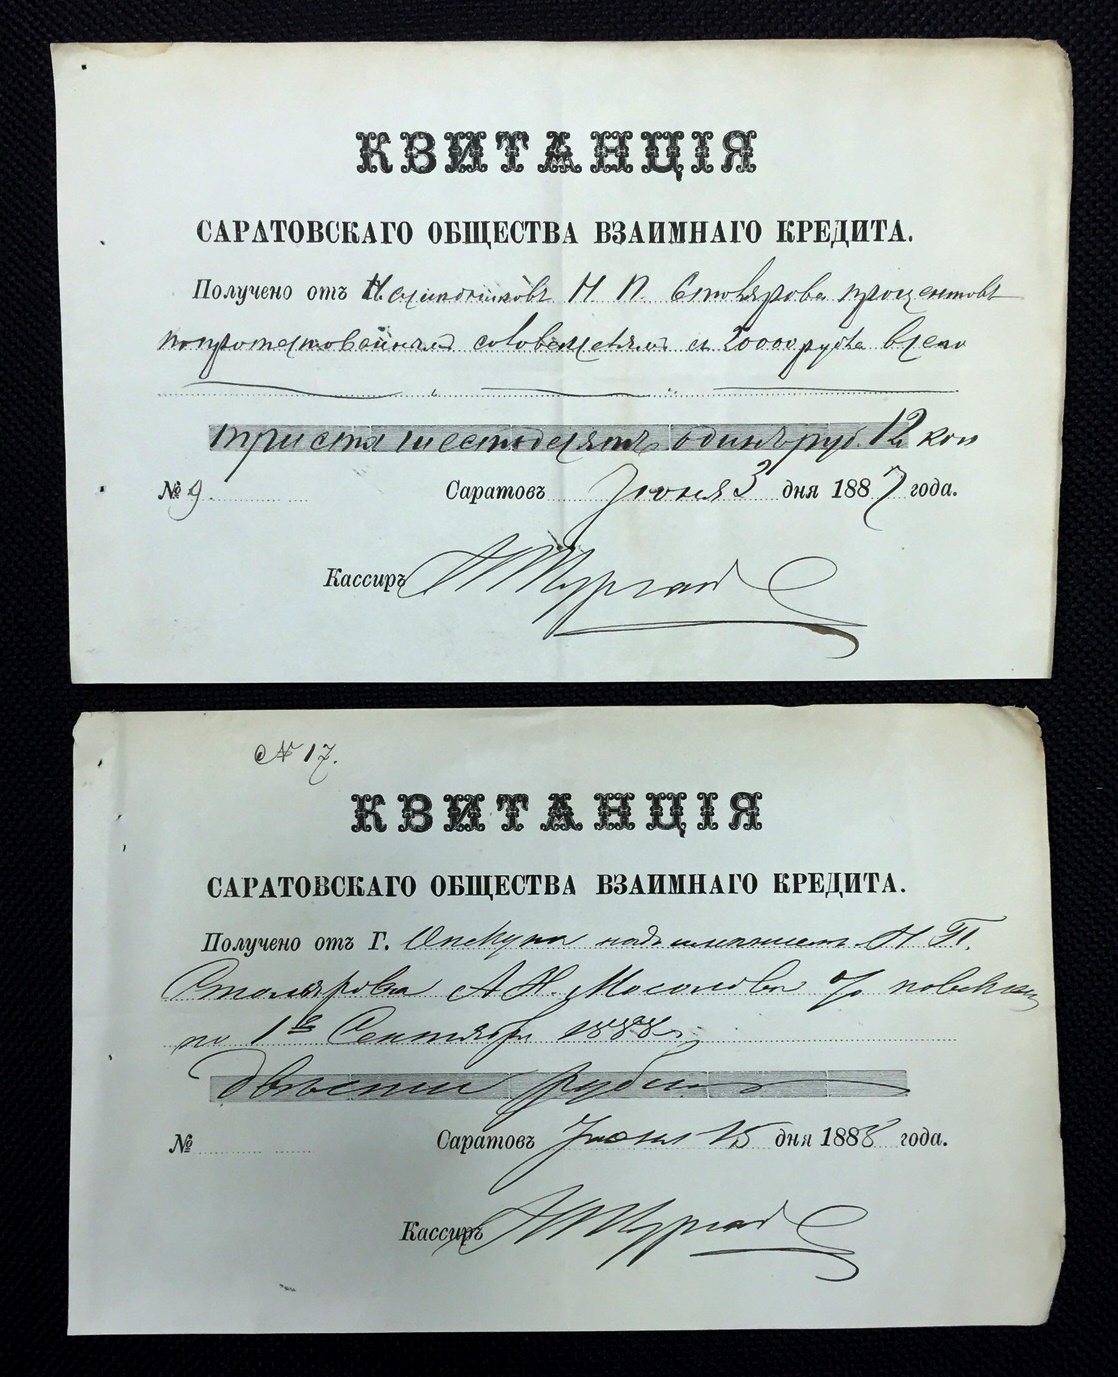 КВИТАНЦІЯ
САРАТОВСКАГО ОБЩЕСТВА ВЗАИМНАГО КРЕДИТА.
Получено отъ Н. П. Столярова процентовъ
20000 рубл. всего
триста шестьдесятъ одинъ руб. 12 коп
№ 9. Саратовъ Іюня 3 дня 1887 года.
Кассиръ
№ 17.
КВИТАНЦІЯ
САРАТОВСКАГО ОБЩЕСТВА ВЗАИМНАГО КРЕДИТА.
Получено отъ Г. Опекуна надъ имѣніемъ Н. П.
Столярова А. Н. Мосолова %
по 1е Сентября 1888 г.
двѣсти рубл.
№ Саратовъ Іюня 15 дня 1888 года.
Кассиръ